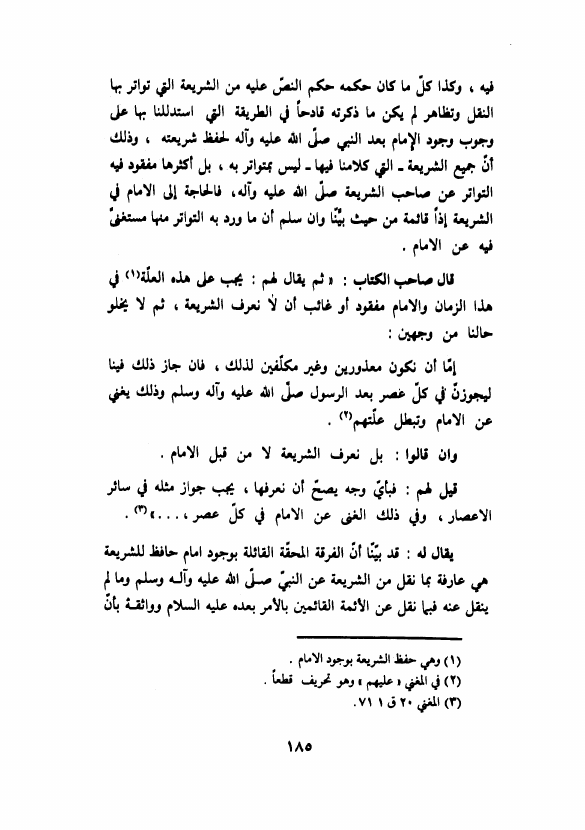 فيه ، وكذا كلّ ما كان حكمه حكم النصّ عليه من الشريعة التي تواتر بها
النقل وتظاهر لم يكن ما ذكرته قادحاً في الطريقة التي استدللنا بها على
وجوب وجود الإمام بعد النبي صلّى الله عليه وآله لحفظ شريعته ، وذلك
أنّ جميع الشريعة ـ التي كلامنا فيها ـ ليس بمتواتر به ، بل أكثرها مفقود فيه
التواتر عن صاحب الشريعة صلّى الله عليه وآله، فالحاجة إلى الامام في
الشريعة إذاً قائمة من حيث بيّنّا وان سلم أن ما ورد به التواتر منها مستغنىً
فيه عن الامام .
قال صاحب الكتاب : « ثم يقال لهم : يجب على هذه العلّة(١) في
هذا الزمان والامام مفقود أو غائب أن لا نعرف الشريعة ، ثم لا يخلو
حالنا من وجهين :
إمّا أن نكون معذورين وغير مكلّفين لذلك ، فان جاز ذلك فينا
ليجوزنّ في كلّ عصر بعد الرسول صلّى الله عليه وآله وسلم وذلك يغني
عن الامام وتبطل علّتهم(٢) .
وان قالوا : بل نعرف الشريعة لا من قبل الامام .
قيل لهم : فبأيّ وجه يصحّ أن نعرفها ، يجب جواز مثله في سائر
الاعصار ، وفي ذلك الغنى عن الامام في كلّ عصر ، . . . »(٣) .
يقال له : قد بيّنّا أنّ الفرقة المحقّة القائلة بوجود امام حافظ للشريعة
هي عارفة بما نقل من الشريعة عن النبيّ صلّى الله عليه وآله وسلم وما لم
ينقل عنه فبما نقل عن الأئمة القائمين بالأمر بعده عليه السلام وواثقة بأنّ
(١) وهي حفظ الشريعة بوجود الامام .
(٢) في المغني « عليهم » وهو تحريف قطعاً .
(٣) المغني ٢٠ ق ١ ٧١.
١٨٥